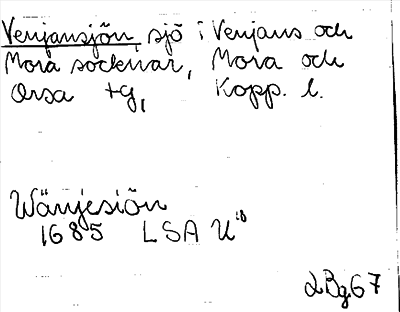 Venjansjön, sjö i Venjans och
Mora socknar, Mora och
Orsa tg, Kopp. l.
Wänjesiön
1685 LSA U 18
LBg67